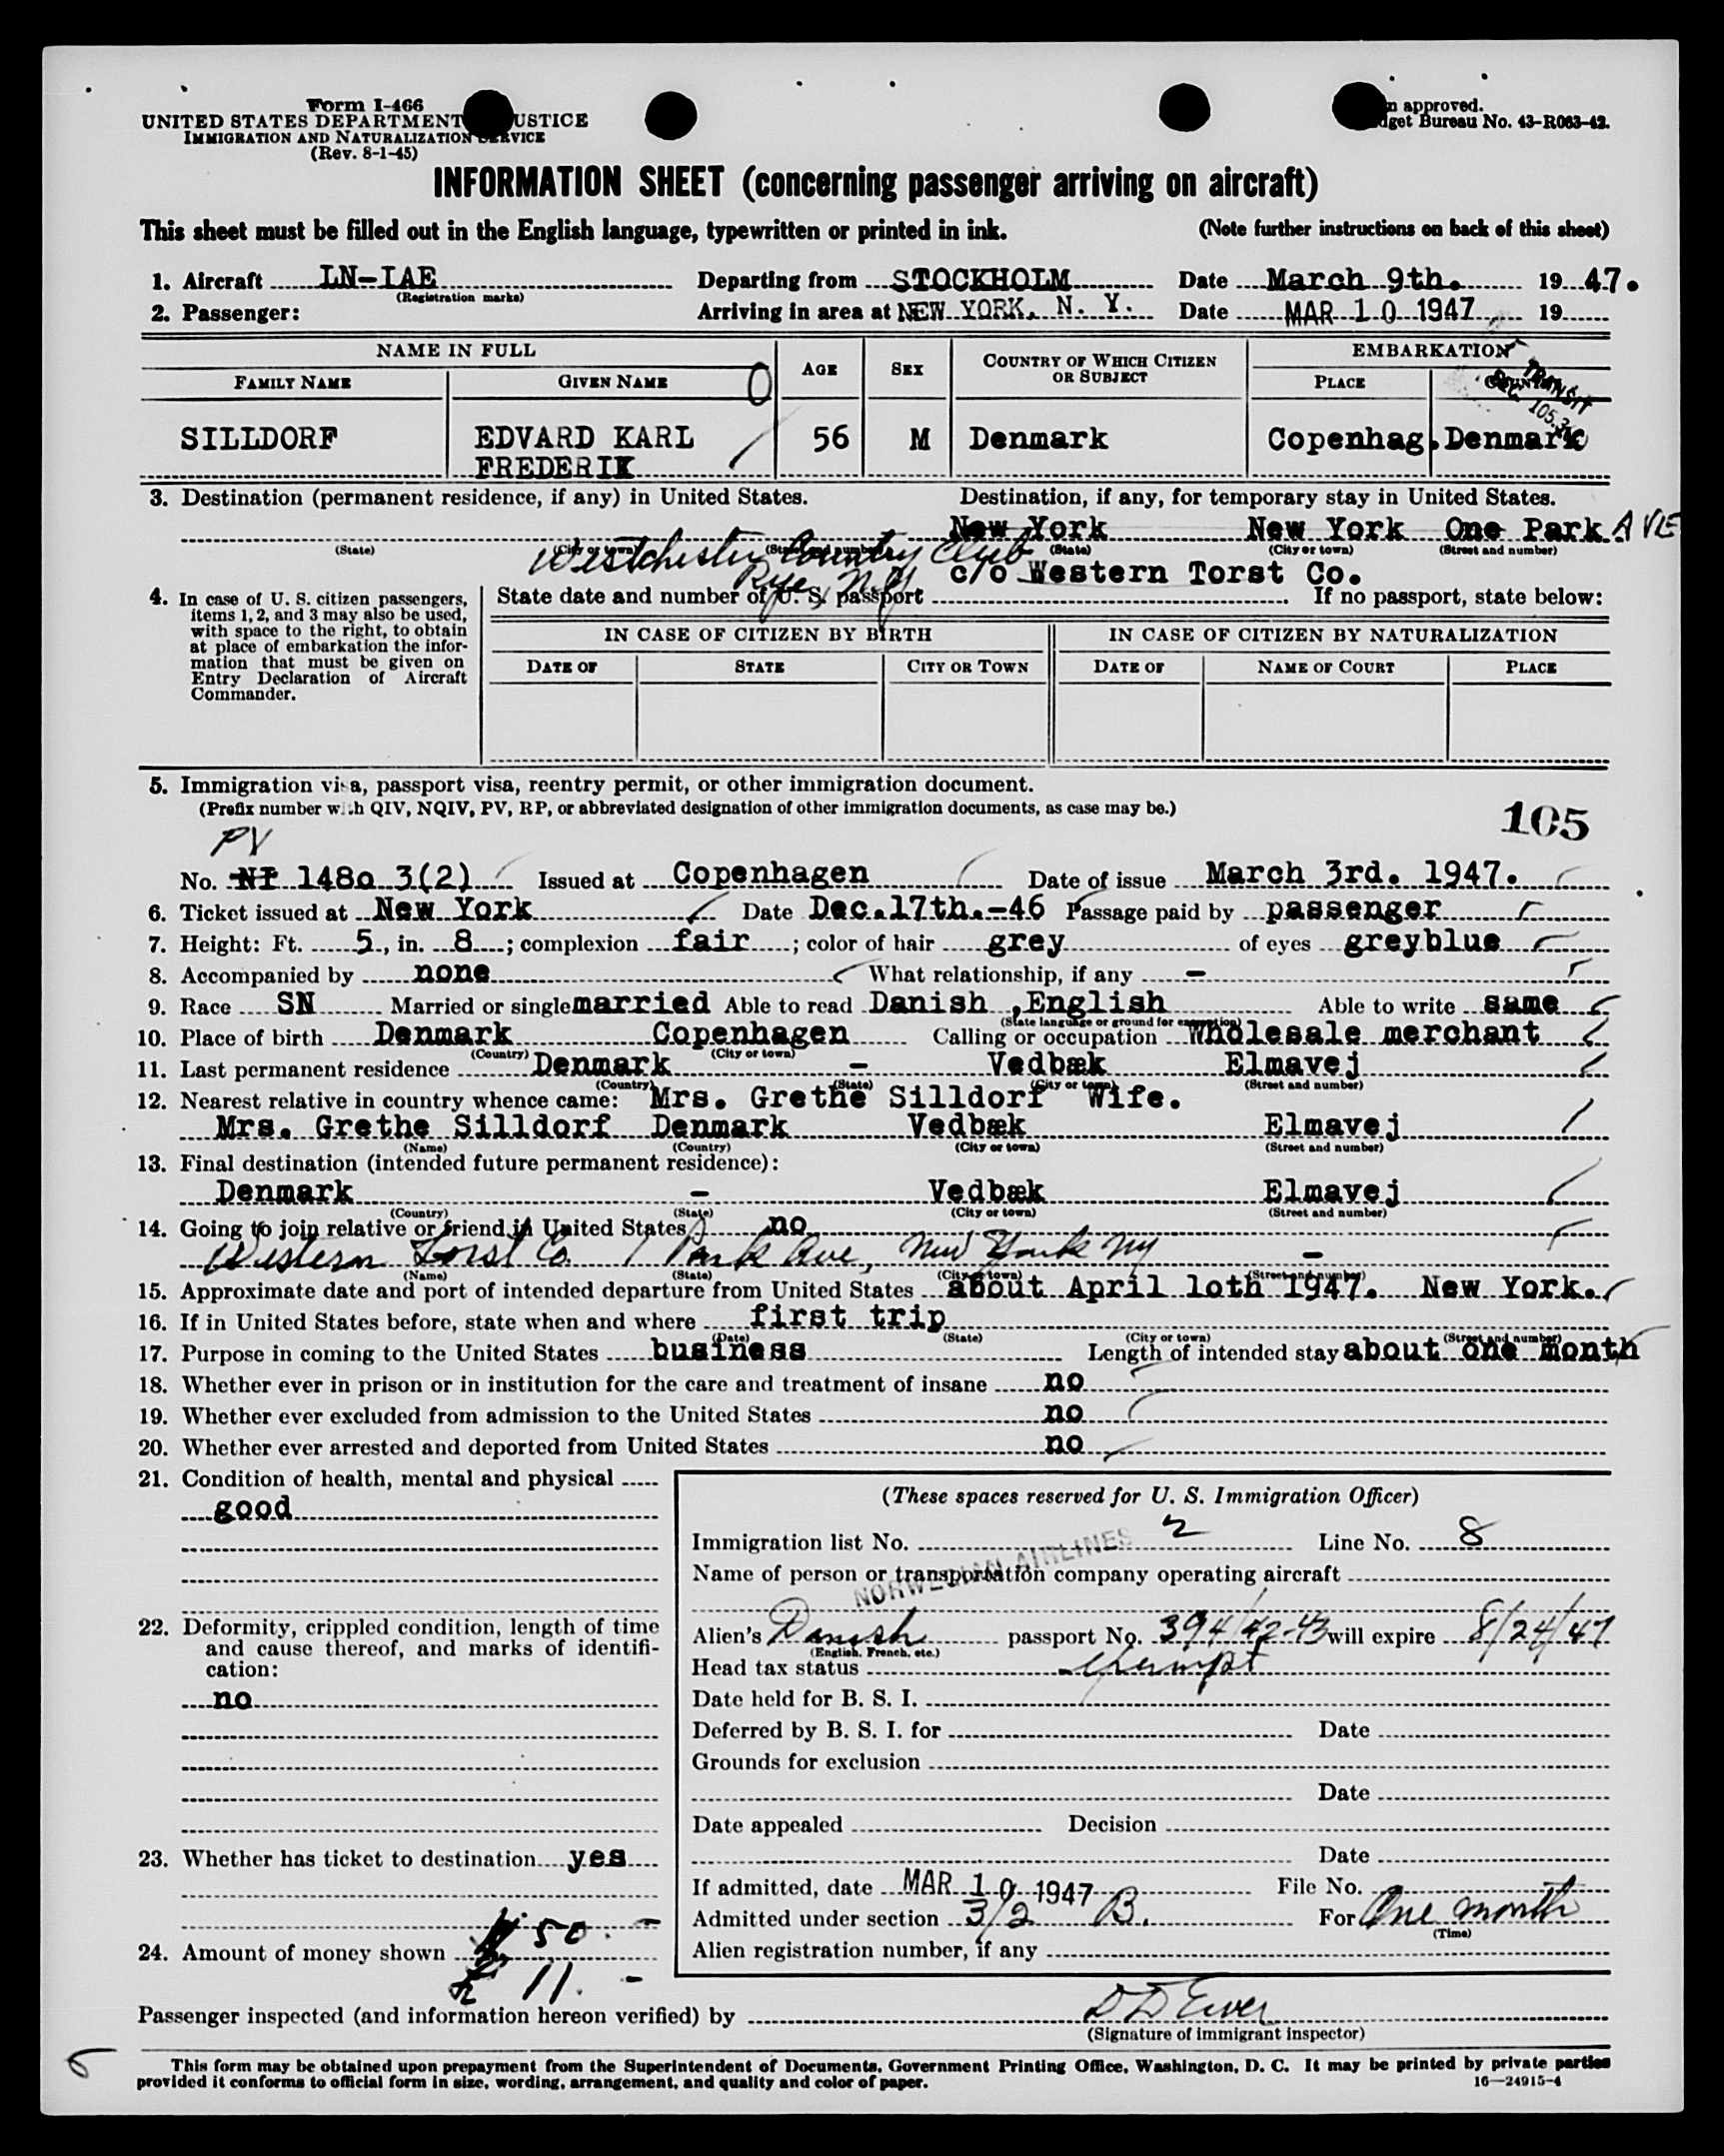 Form I-466
UNITED STATES DEPARTMENT USTICE
IMMIGRATION AND NATURALIZATION SERVICE
(Rev. 8-1-45)
n approved.
dget Bureau No. 43-R063-42.
INFORMATION SHEET (concerning passenger arriving on aircraft)
This sheet must be filled out in the English language, typewritten or printed in ink. (Note further instructions on back of this sheet)
1. Aircraft LN-IAE Departing from STOCKHOLM Date March 9th. 19 47.
(Registration marks)
2. Passenger: Arriving in area at NEW YORK, N. Y. Date MAR 10 1947 19
NAME IN FULL AGE SEX COUNTRY OF WHICH CITIZEN OR SUBJECT EMBARKATION
FAMILY NAME GIVEN NAME 0 PLACE COUNTRY
TRANSIT
SEC. 105.3
SILLDORF EDVARD KARL 56 M Denmark Copenhag. Denmark
FREDERIK
3. Destination (permanent residence, if any) in United States. Destination, if any, for temporary stay in United States.
New York New York One Park AVE
(State) (City or town) (Street and number) (State) (City or town) (Street and number)
Westchester Country Club
Rye, N.Y.
c/o Western Torst Co.
4. In case of U. S. citizen passengers, items 1, 2, and 3 may also be used, with space to the right, to obtain at place of embarkation the information that must be given on Entry Declaration of Aircraft Commander.
State date and number of U. S. passport If no passport, state below:
IN CASE OF CITIZEN BY BIRTH IN CASE OF CITIZEN BY NATURALIZATION
DATE OF STATE CITY OR TOWN DATE OF NAME OF COURT PLACE
5. Immigration visa, passport visa, reentry permit, or other immigration document.
(Prefix number with QIV, NQIV, PV, RP, or abbreviated designation of other immigration documents, as case may be.)
105
PV
No. NI 148o 3(2) Issued at Copenhagen Date of issue March 3rd. 1947.
6. Ticket issued at New York Date Dec.17th.-46 Passage paid by passenger
7. Height: Ft. 5, in. 8; complexion fair; color of hair grey of eyes greyblue
8. Accompanied by none What relationship, if any -
9. Race SN Married or single married Able to read Danish, English Able to write same
(State language or ground for exemption)
10. Place of birth Denmark Copenhagen Calling or occupation Wholesale merchant
(Country) (City or town)
11. Last permanent residence Denmark - Vedbæk Elmavej
(Country) (State) (City or town) (Street and number)
12. Nearest relative in country whence came: Mrs. Grethe Silldorf Wife.
Mrs. Grethe Silldorf Denmark Vedbæk Elmavej
(Name) (Country) (City or town) (Street and number)
13. Final destination (intended future permanent residence):
Denmark - Vedbæk Elmavej
(Country) (State) (City or town) (Street and number)
14. Going to join relative or friend in United States no
Western Torst Co. 1 Park Ave, New York NY -
(Name) (State) (City or town) (Street and number)
15. Approximate date and port of intended departure from United States about April 1oth 1947. New York.
16. If in United States before, state when and where first trip
(Date) (State) (City or town) (Street and number)
17. Purpose in coming to the United States business Length of intended stay about one month
18. Whether ever in prison or in institution for the care and treatment of insane no
19. Whether ever excluded from admission to the United States no
20. Whether ever arrested and deported from United States no
21. Condition of health, mental and physical
good
22. Deformity, crippled condition, length of time and cause thereof, and marks of identification:
no
23. Whether has ticket to destination yes
24. Amount of money shown $ 50.-
£ 11.-
(These spaces reserved for U. S. Immigration Officer)
Immigration list No. 2 Line No. 8
Name of person or transportation company operating aircraft
NORWEGIAN AIRLINES
Alien's Danish passport No. 394/42-43 will expire 8/24/47
(English, French, etc.)
Head tax status exempt
Date held for B. S. I.
Deferred by B. S. I. for Date
Grounds for exclusion
Date
Date appealed Decision
Date
If admitted, date MAR 10 1947 File No.
Admitted under section 3/2 B. For One month
(Time)
Alien registration number, if any
Passenger inspected (and information hereon verified) by D D Ewer
(Signature of immigrant inspector)
This form may be obtained upon prepayment from the Superintendent of Documents, Government Printing Office, Washington, D. C. It may be printed by private parties
provided it conforms to official form in size, wording, arrangement, and quality and color of paper. 16—24915-4